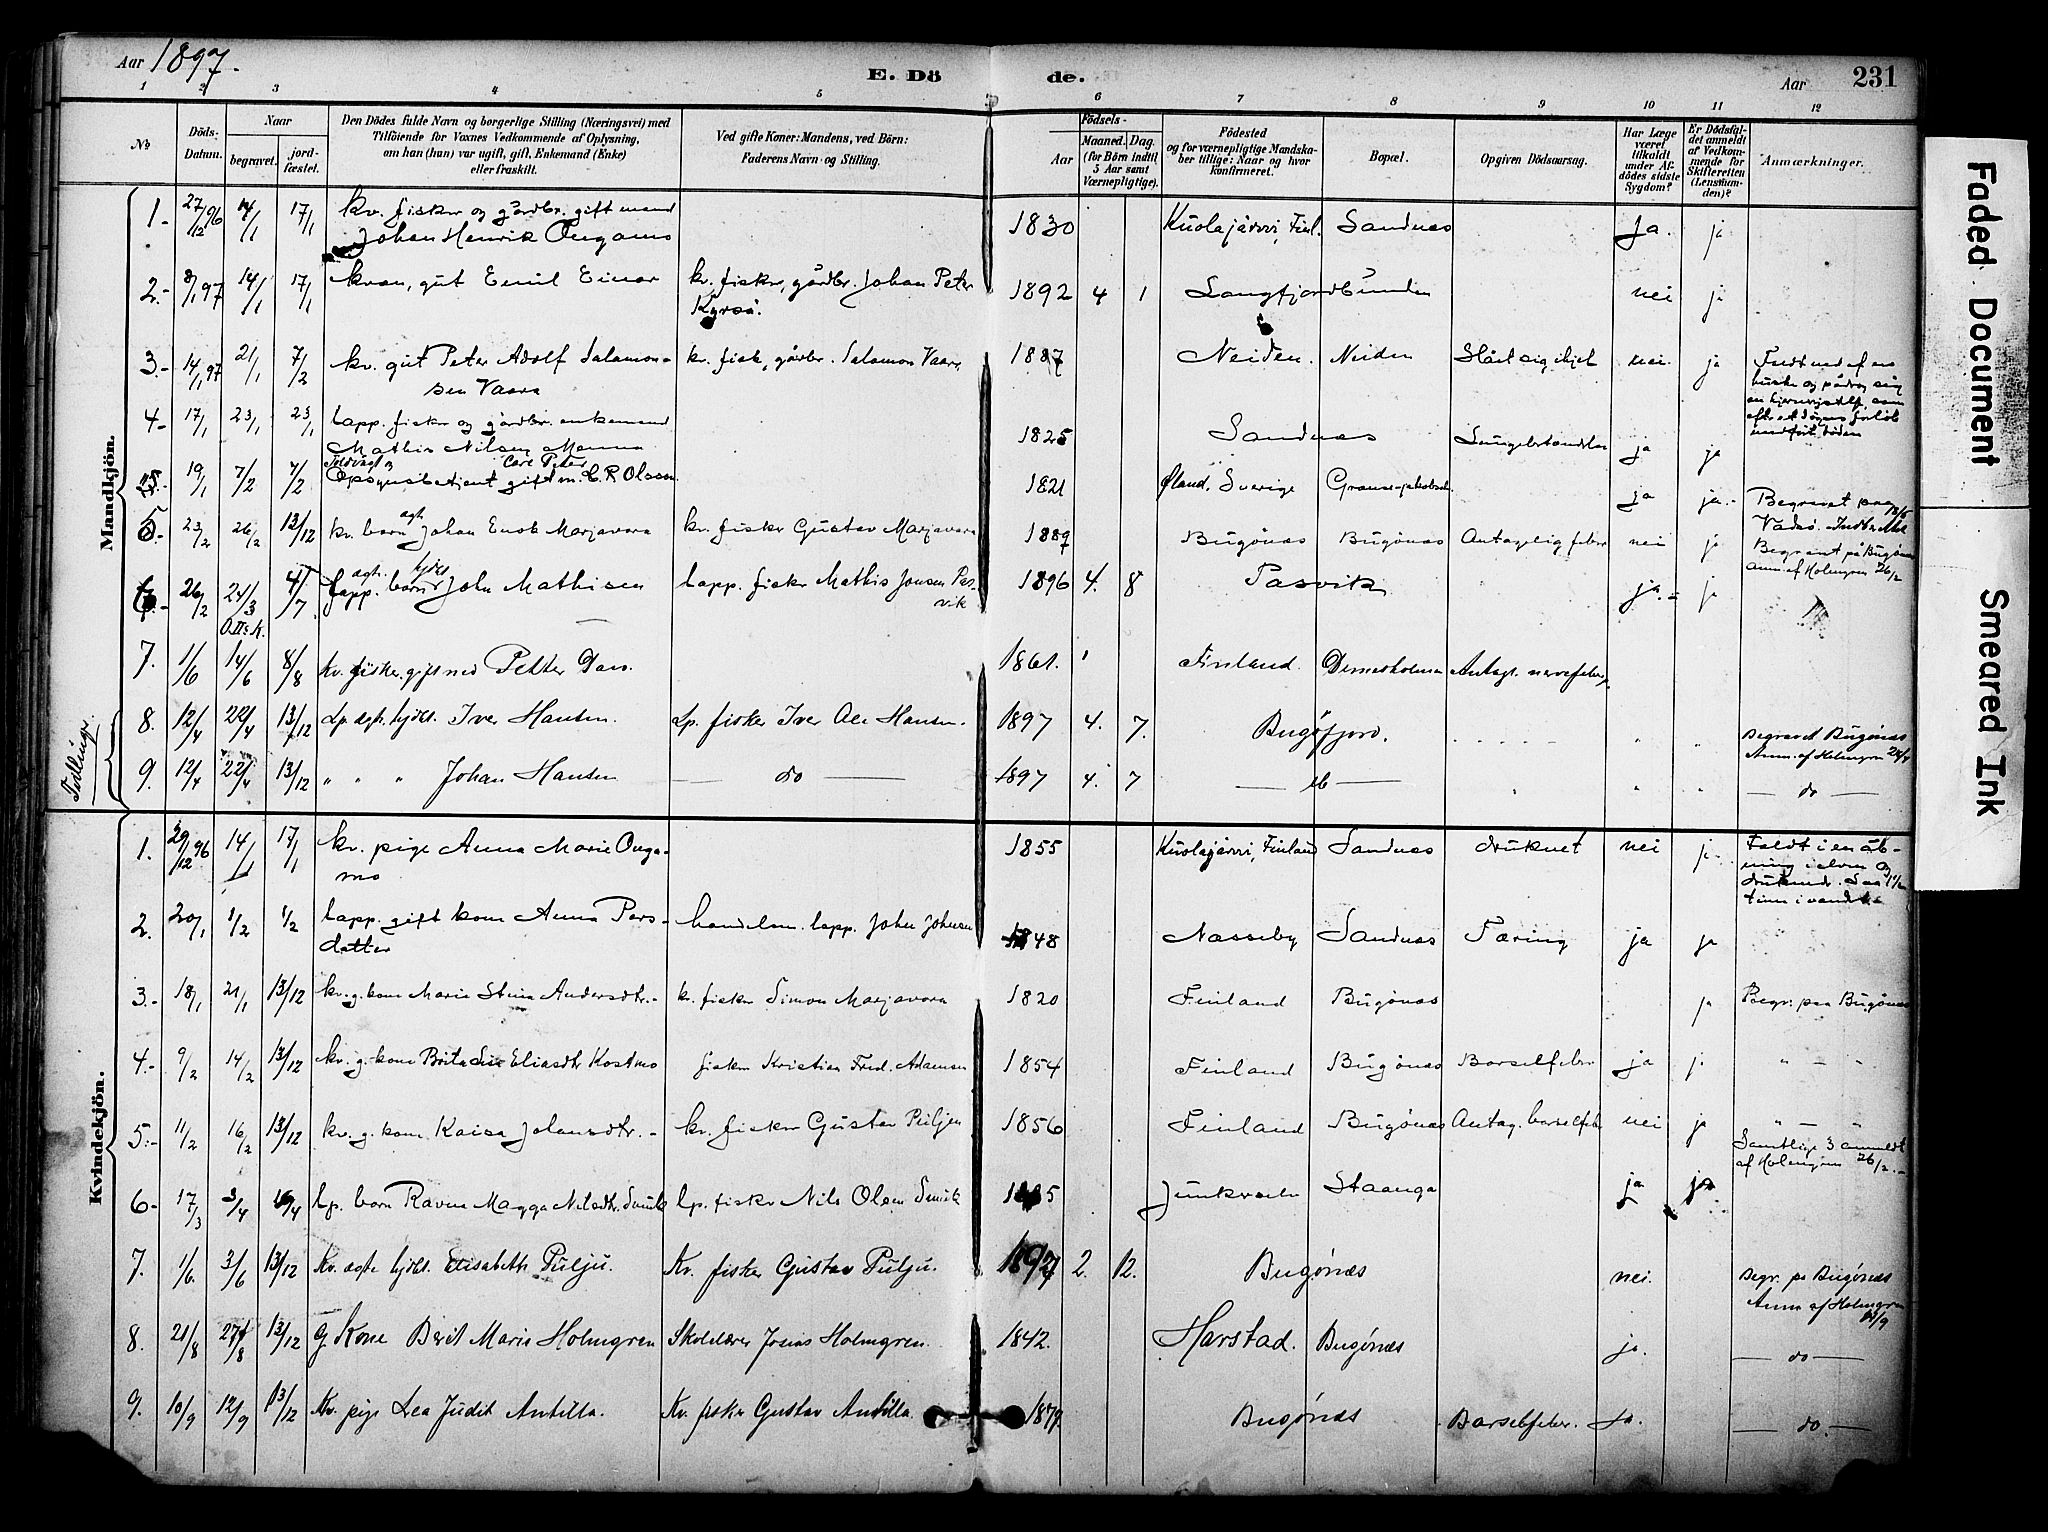 Aar 1897.
E. Dö de.
Aar 231
1 2 3 4 5 6 7 8 9 10 11 12
No
Döds-Datum.
Naar
begravet.
jordfæstet.
Den Dödes fulde Navn og borgerlige Stilling (Næringsvei) med
Tilföiende for Voxnes Vedkommende af Oplysning,
om han (hun) var ugift, gift, Enkemand (Enke)
eller fraskilt.
Ved gifte Koner: Mandens, ved Börn:
Faderens Navn og Stilling.
Födsels-
Aar
Maaned. Dag.
(for Börn indtil
5 Aar samt
Værnepligtige).
Födested
og for værnepligtige Mandska-
ber tillige: Naar og hvor
konfirmeret.
Bopæl.
Opgiven Dödsaarsag.
Har Læge
været
tilkaldt
under Af-
dödes sidste
Sygdom?
Er Dödsfal-
det anmeldt
af Vedkom-
mende for
Skifteretten
(Lensman-
den)?
Anmærkninger.
Mandkjön.
1.- 27/12 96 14/1 17/1 kv. fisker og gårdbr. gift mand
Johan Henrik Ongamo 1830 Kuolajärvi, Finl. Sandnæs Ja. ja
2.- 8/1 97 14/1 17/1 kvæn, gut Emil Einar kv. fisker, gårdbr. Johan Peter 1892 4 1 Langfjordbunden nei ja
3.- 14/1 97 21/1 7/2 kv. gut Peter Adolf Salamon- kv. fisk, gårdbr. Salamon Vaara 1887 Neiden. Neiden Slået sig ihjel nei. ja
sen Vaara
4- 17/1 23/1 23/1 lapp. fisker og gårdbr. enkemand
Mathis Nilsen Menna 1825 Sandnæs ja ja
Carl Peter
19/1 7/2 7/2 gift m. C. P. Olsson 1821 Øland, Sverige Grænse-Jakobselv ja ja.-
Begravet paa
Vadsø.
23/2 26/2 13/12 kv. barn Johan Enok Marjavara kv. fisker Gustav Marjavara 1889 Bugønæs Bugønæs Antagelig feber nei ja
Begravet på Bugønæs
Anm. af Holmgren 26/2
26/2 24/3 4/7 lapp. barn John Mathisen lapp. fisker Mathis Jonsen Pas-
vik 1896 4. 8 Pasvik ja.- ja
7. 1/6 14/6 8/8 Kv. fisker, gift med Petter Dars. 1861. Finland. Antagl. nervefeber
Tvillinger.
8. 12/4 22/4 13/12 Lp. ægte hjdts. Iver Hansen. Lp. fisker Iver Ole Hansen. 1897 4. 7. Bugøfjord. Begravet Bugønæs
Anm. af Holmgren 28/4
9. 12/4 22/4 13/12 " " " Johan Hansen — do — 1897 4. 7 — do —
Kvindekjön.
1. 29/12 96 14/1 17/1 kv. pige Anna Marie Onga-
mo 1855 Kuolajärvi, Finland Sandnæs druknet nei ja Faldt i en åb-
ning i elven og
druknede.
2. 20/1 1/2 1/2 lapp. gift kone Anna Pers-
datter handelsm. lapp. John Johnsen 1848 Næsseby Sandnæs Tæring ja ja
3.- 18/1 21/1 13/12 kv. g. kone Marie Stina Andersdtr.- k. fisker Simon Marjavara 1820 Finland Bugønæs ja Begr. paa Bugønæs
4.- 9/2 14/2 13/12 kv. g. kone Brita Lise Eliasdtr Kostmo fisker Kristian Fred. Adamsen 1854 Finland Bugønæs Barselfeber ja ja " – "
5.- 11/2 16/2 13/12 kv. g. kone Kaisa Johansdtr.- kv. fisker Gustav Puljen 1856 Finland Bugønæs Antag. barselfeber nei ja " – "
Samtlige 3 anmeldt
af Holmgren 26/2.-
6- 17/3 3/4 lp. barn Ravna Magga Nilsdtr. lp. fisker Nils Olsen Staanga ja ja
7. 1/6 3/6 13/12 Kv. ægte hjdts. Elisabeth Pulju. Kv. fisker Gustav Pulju. 1897 2. 12. Bugønæs nei. Begr. på Bugønæs
Anm. af Holmgren
8. 21/8 27/8 13/12 g Kone Berit Marie Holmgren Skolelærer Josias Holmgren. 1842. Harstad. Bugønæs ja. — do —
9. 10/9 12/9 13/12 Kv. pige Lea Judit Antilla. Kv. fisker Gustav Antilla 1879. Bugønæs Barselfeber. Ja. — do. —
Faded Document
Smeared Ink